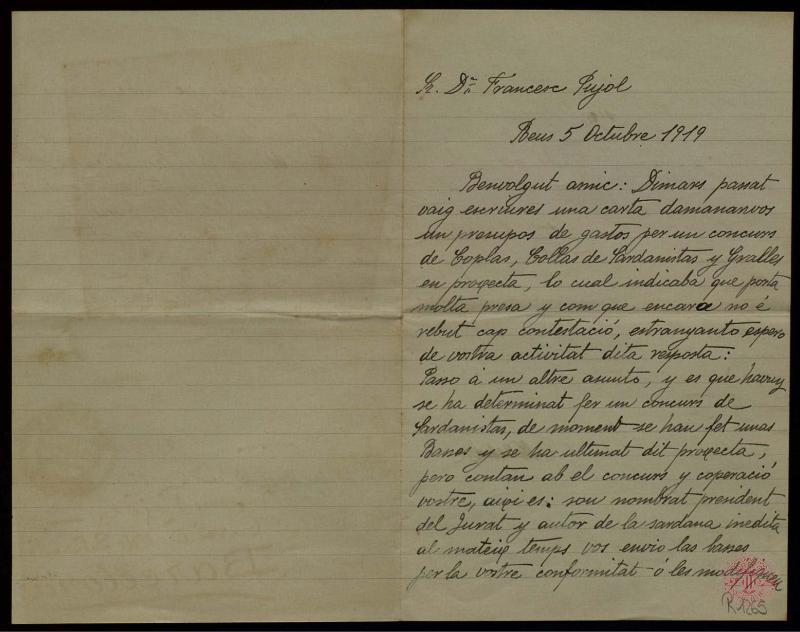 Sr. Dn. Francesc Pujol
Reus 5 Octubre 1919
Benvolgut amic: Dimars passat
vaig escriures una carta damananvos
un presupos de gastos per un concurs
de Coplas, Collas de Sardanistas y Gralles
en proyecta, lo cual indicaba que porta
molta presa y com que encara no é
rebut cap contestació, estranyanto espero
de vostra activitat dita resposta:
Passo á un altre asunto, y es que havuy
se ha determinat fer un concurs de
Sardanistas, de moment se han fet unas
Bases y se ha ultimat dit proyecta,
pero contan ab el concurs y coperació
vostre, aixi es: sou nombrat president
del Jurat y autor de la sardana inedita
al mateix temps vos envio las bases
per la vostre conformitat ó les modifiqueu
R. 1265